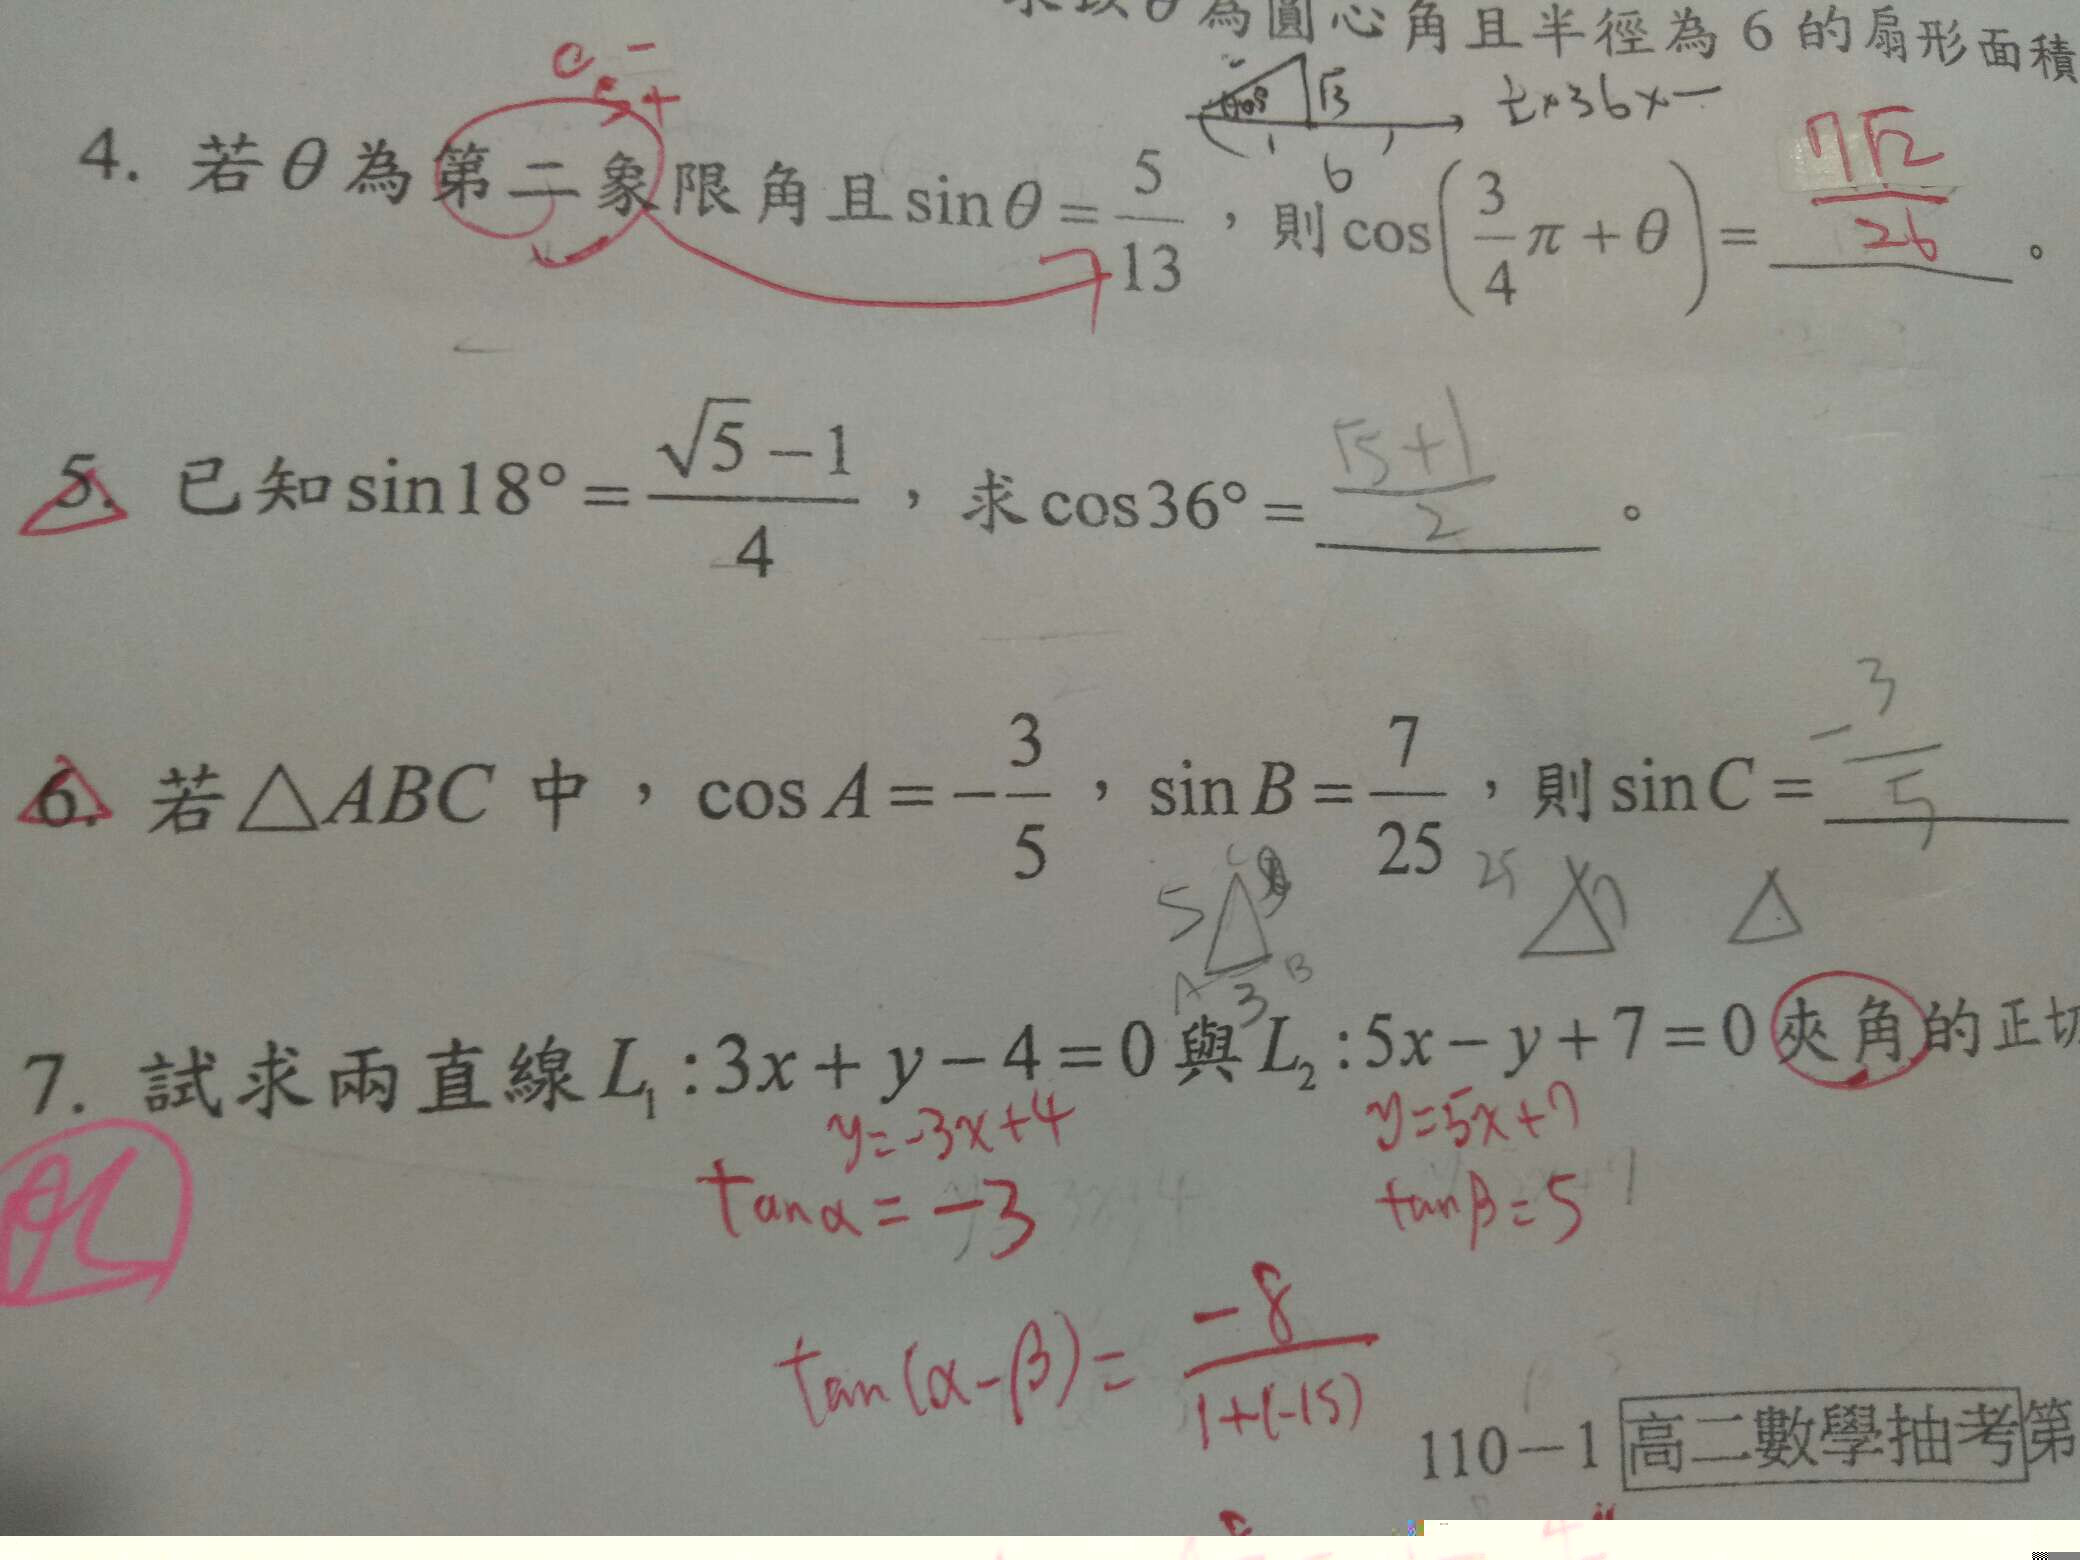 為圓心角且半徑為 6 的扇形面積
√3 ½×36×
6
4. 若θ為第二象限角且sinθ=5/13，則cos(3/4 π+θ)= 7√2/26 。
5. 已知sin18°=(√5-1)/4，求cos36°= (√5+1)/2 。
6. 若△ABC中，cos A=-3/5，sin B=7/25，則sin C= -3/5
5 25 7
A B
3
7. 試求兩直線L₁:3x+y-4=0與L₂:5x-y+7=0夾角的正切
y=-3x+4 y=5x+7
tanα=-3 tanβ=5
tan(α-β)= -8/(1+(-15))
110-1 高二數學抽考第